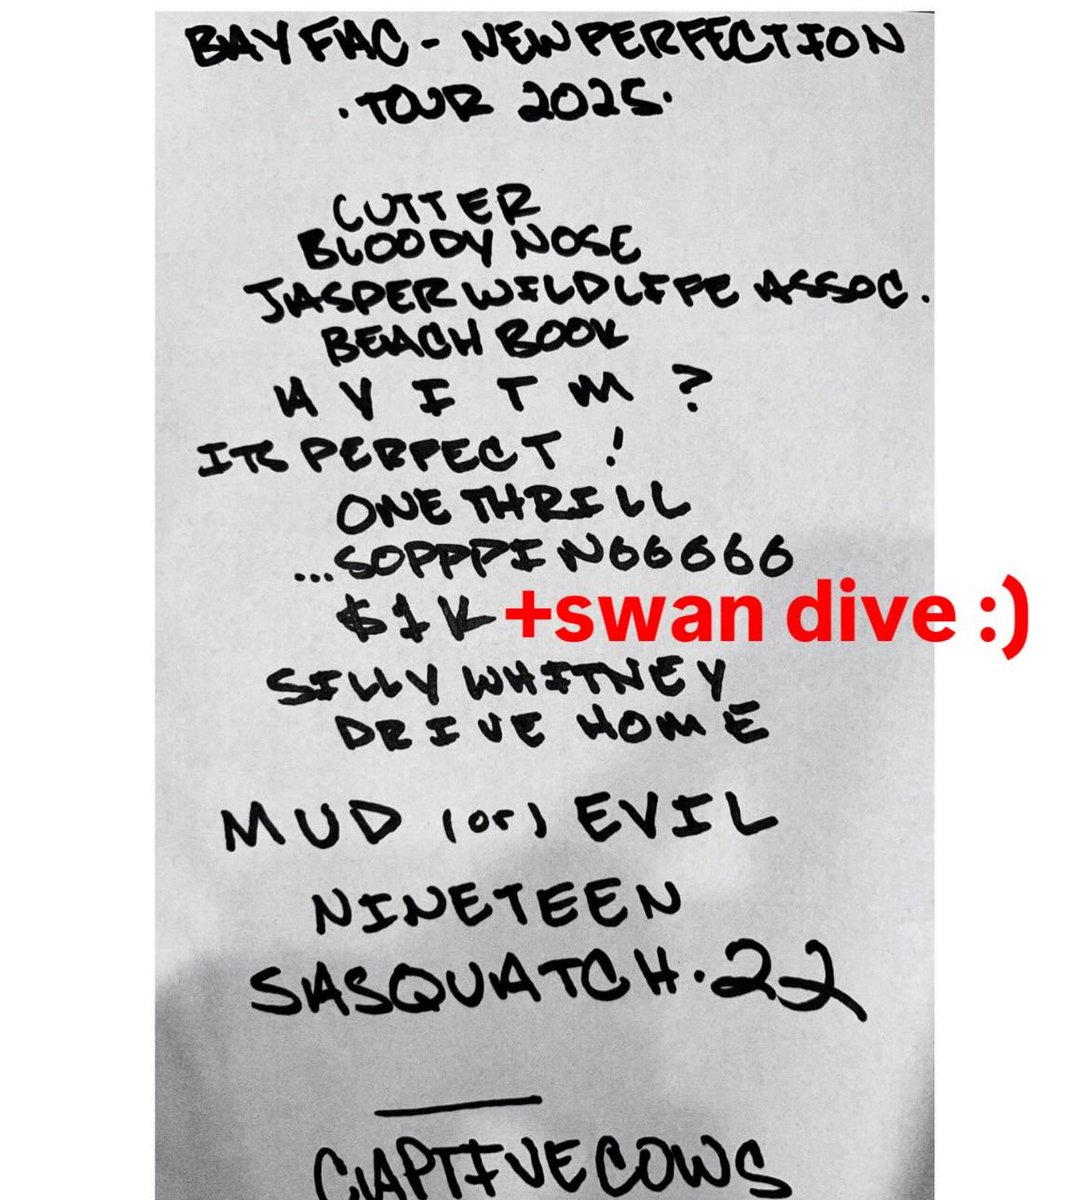 BAY FAC - NEW PERFECTION
· TOUR 2025 ·
CUTTER
BLOODY NOSE
JASPER WILDLIFE ASSOC.
BEACH BOOK
H V I T M ?
IT'S PERFECT !
ONE THRILL
...SOPPPING6666
$1K +swan dive :)
SILLY WHITNEY
DRIVE HOME
MUD (or) EVIL
NINETEEN
SASQUATCH · 22
CAPTIVE COWS